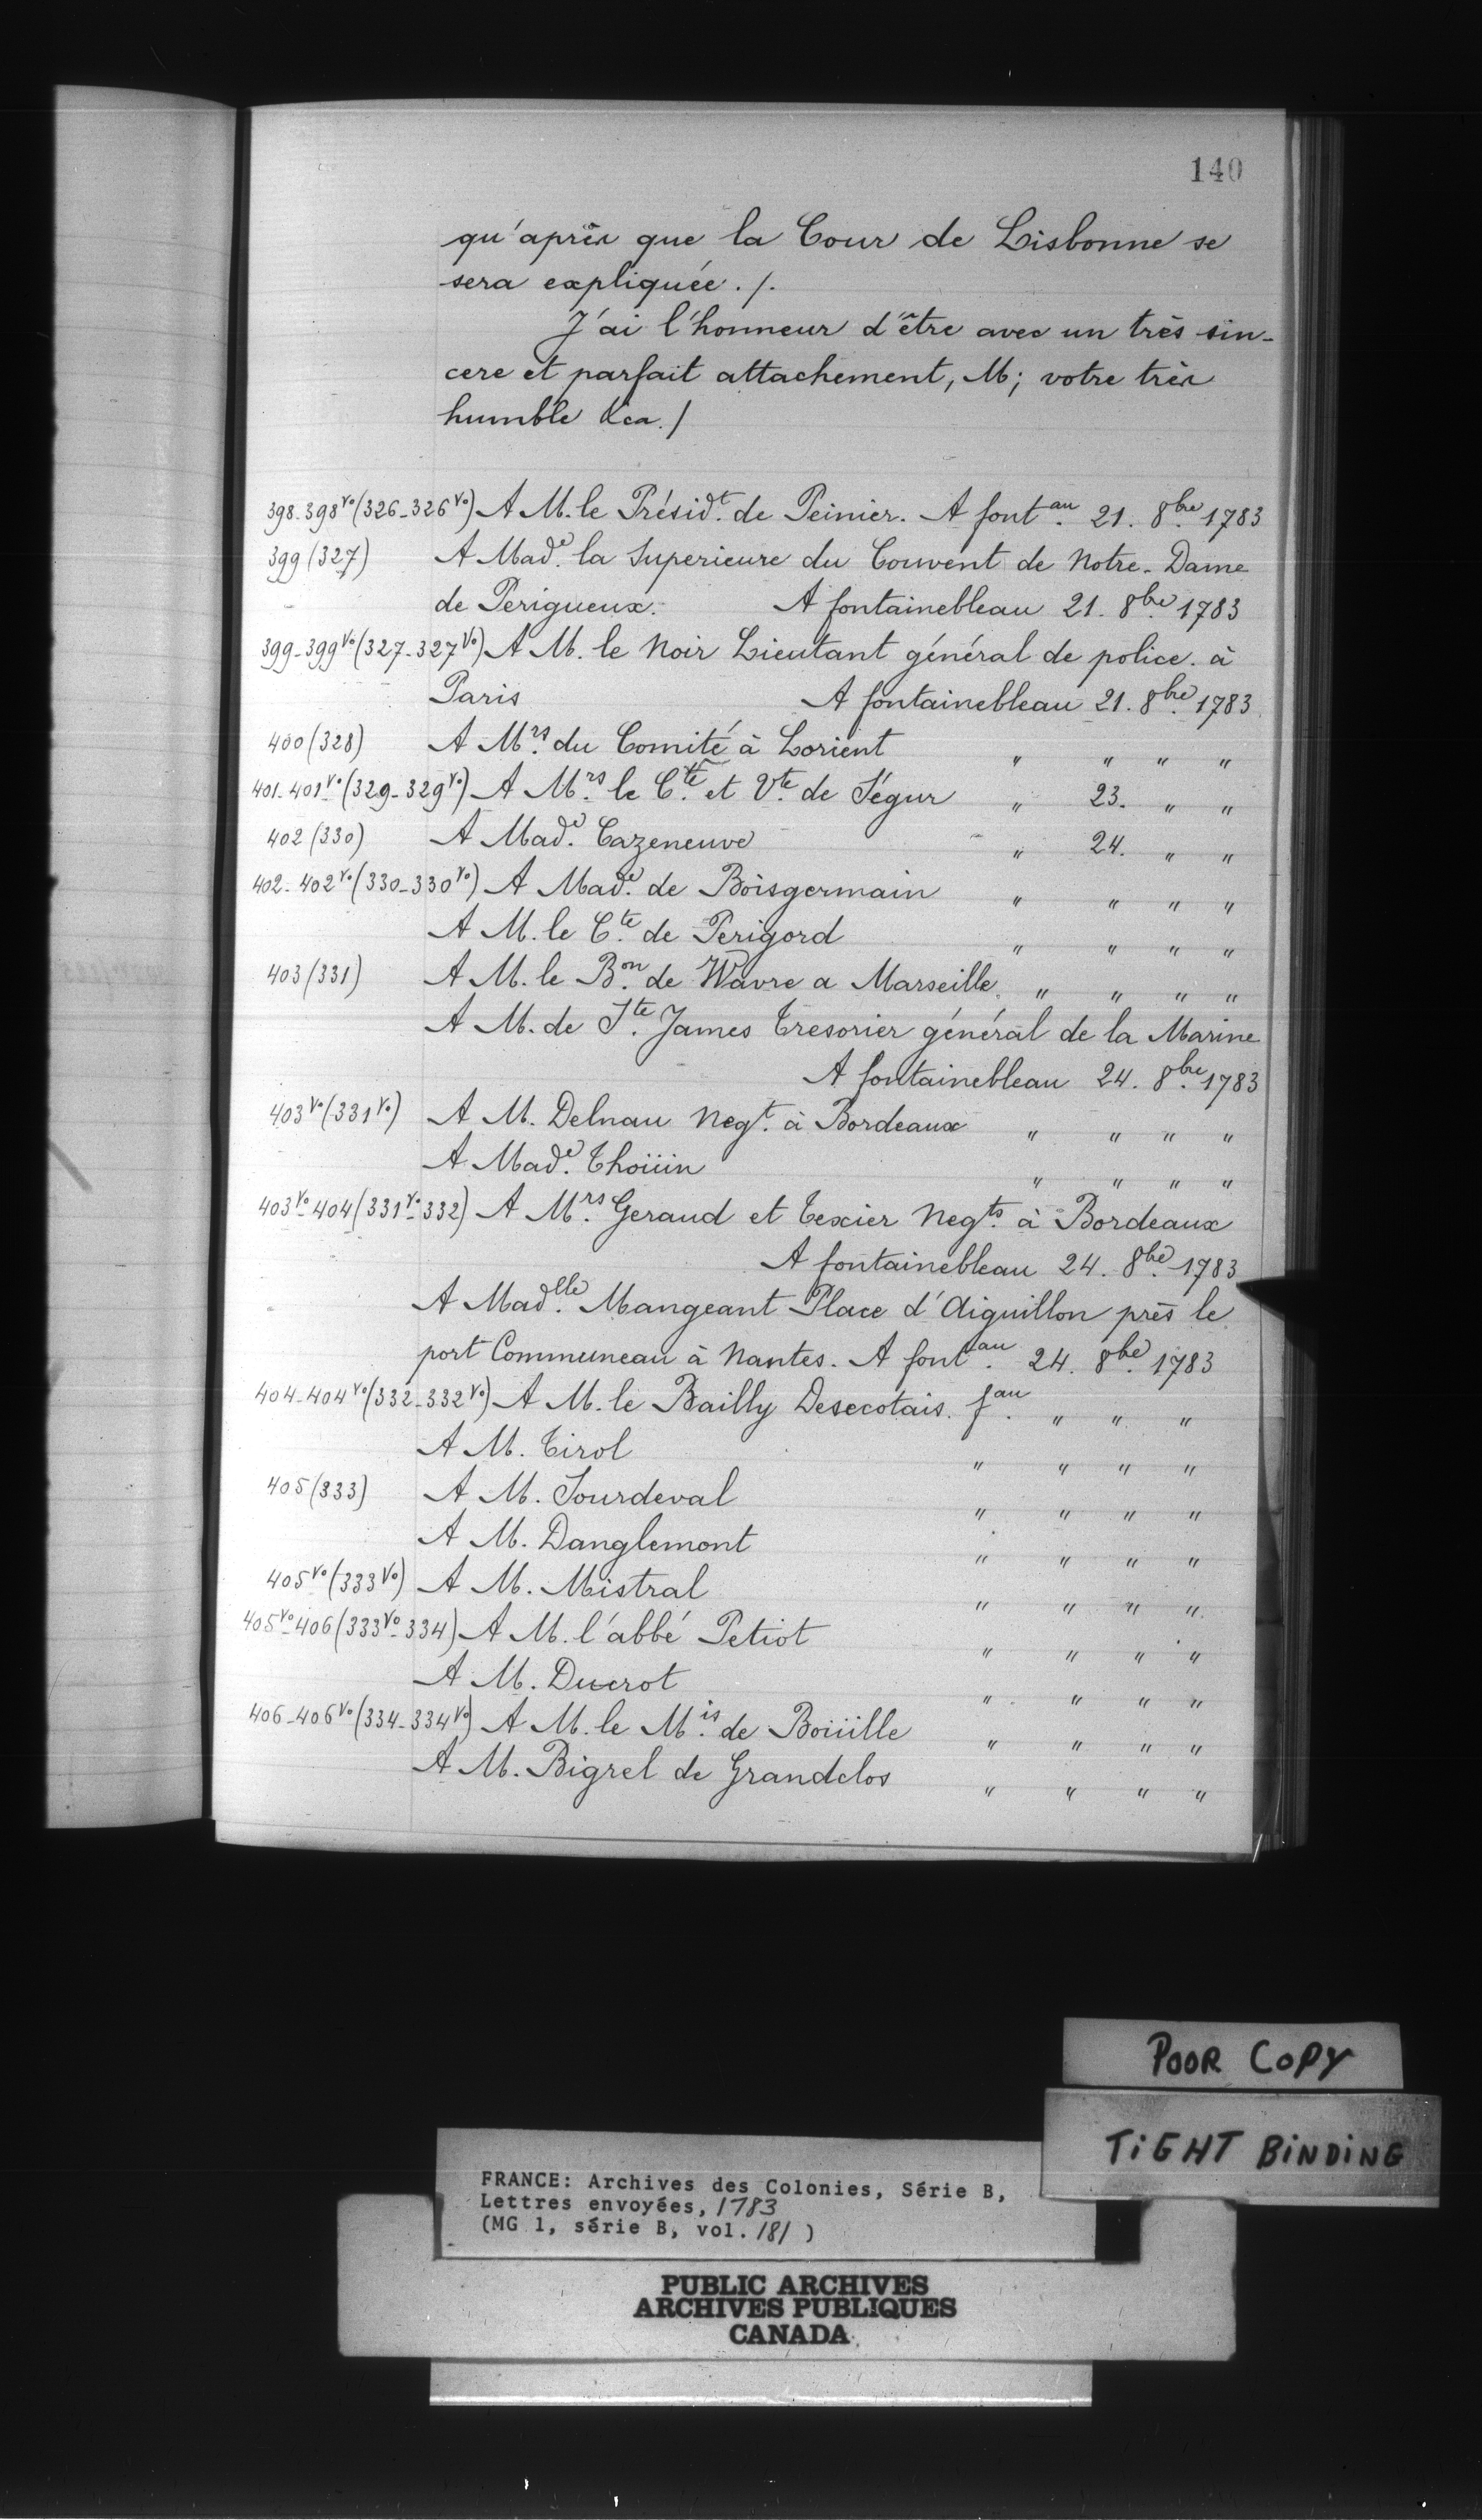 140
qu'après que la Cour de Lisbonne se
sera expliquée. /.
J'ai l'honneur d'être avec un très sin-
cere et parfait attachement, M; votre très
humble &ca. /
398-398vo (326-326vo) A M. le Présidt. de Peinier. A fontau. 21. 8bre. 1783
399 (327) A Made. la Superieure du Couvent de Notre-Dame
de Perigueux. A fontainebleau 21. 8bre. 1783
399-399vo (327-327vo) A M. le Noir Lieutant général de police. à
Paris A fontainebleau 21. 8bre. 1783
400 (328) A Mrs. du Comité à Lorient " " " "
401-401vo (329-329vo) A Mrs. le Cte. et Vte. de Ségur " 23. " "
402 (330) A Made. Cazeneuve " 24. " "
402-402vo (330-330vo) A Made. de Boisgermain " " " "
A M. le Cte. de Perigord " " " "
403 (331) A M. le Bon. de Wavre a Marseille. " " " "
A M. de Ste. James Tresorier général de la Marine
A fontainebleau 24. 8bre. 1783
403vo (331vo) A M. Delnau Negt. à Bordeaux " " " "
A Made. Thoüin " " " "
403vo-404 (331vo-332) A Mrs. Geraud et Texier Negts. à Bordeaux
A fontainebleau 24. 8bre. 1783
A Madlle. Mangeant Place d'Aiguillon près le
port Communeau à Nantes. A fontau. 24. 8bre. 1783
404-404vo (332-332vo) A M. le Bailly Desecotais. fau. " " "
A M. Tirol " " " "
405 (333) A M. Sourdeval " " " "
A M. Danglemont " " " "
405vo (333vo) A M. Mistral " " " "
405vo-406 (333vo-334) A M. l'abbé Petiot " " " "
A M. Ducrot " " " "
406-406vo (334-334vo) A M. le Mis. de Boüille " " " "
A M. Bigrel de Grandclos " " " "
POOR COPY
TIGHT BINDING
FRANCE: Archives des Colonies, Série B,
Lettres envoyées, 1783
(MG 1, série B, vol. 181 )
PUBLIC ARCHIVES
ARCHIVES PUBLIQUES
CANADA